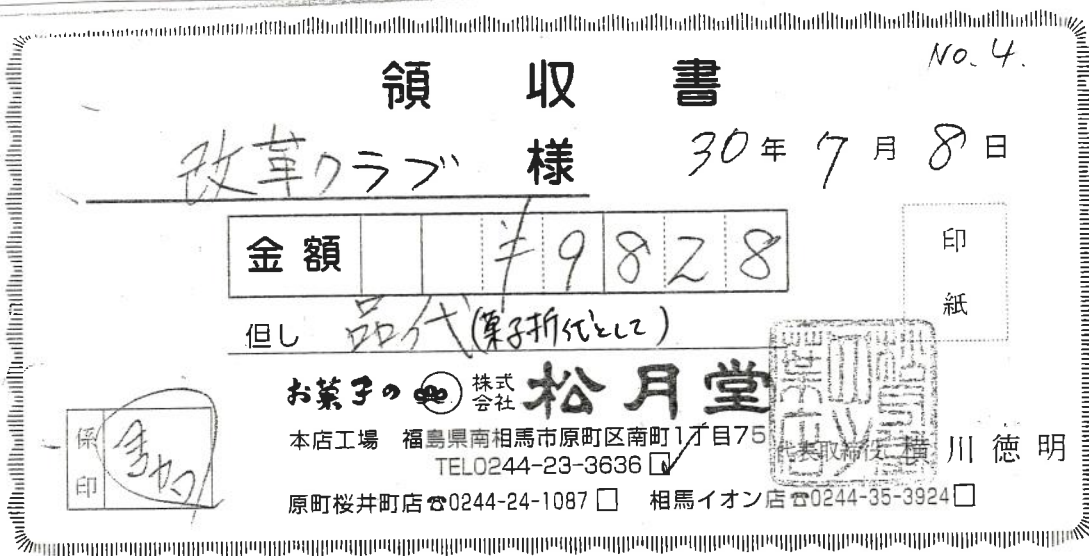 No.4.
領収書
改革クラブ 様 30年7月8日
金額 ¥9828
印紙
但し 品代(菓子折代として)
お菓子の 株式会社 松月堂
本店工場 福島県南相馬市原町区南町1丁目75
TEL0244-23-3636 ☑
代表取締役 横川徳明
原町桜井町店☎0244-24-1087 □ 相馬イオン店☎0244-35-3924 □
係印